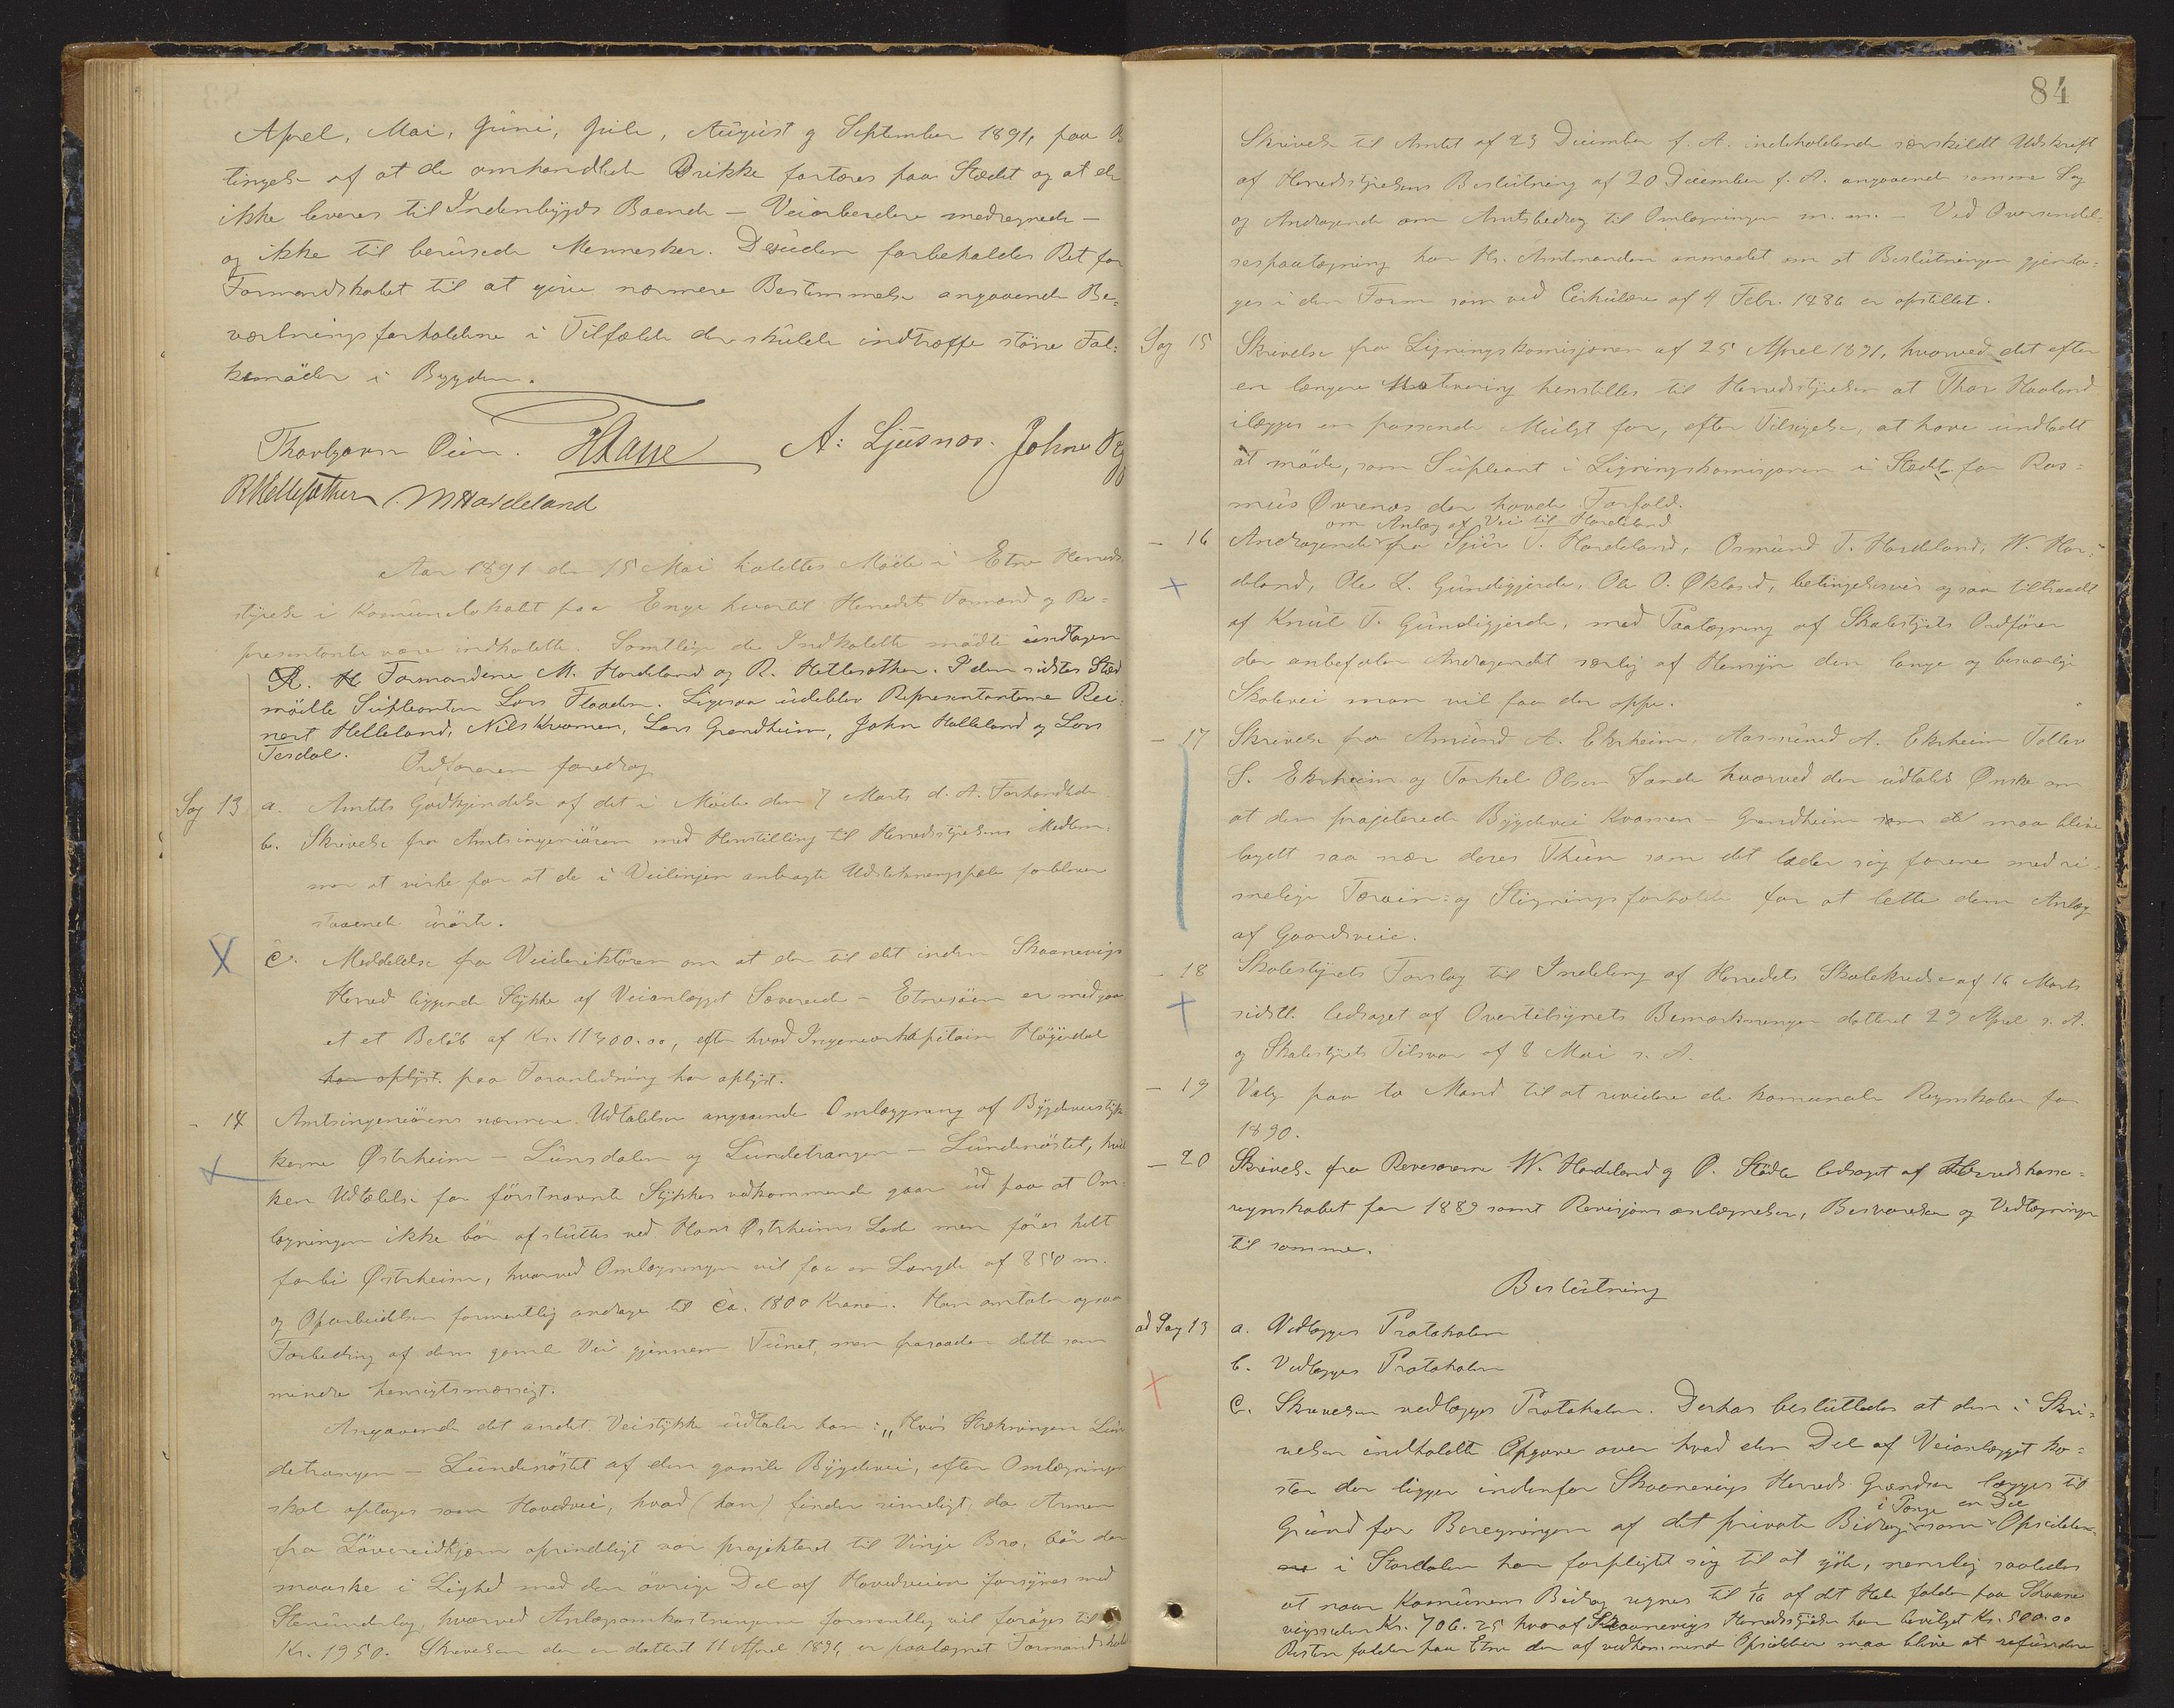 Aprel, Mai, Juni, Juli, August og September 1891, paa B
tingelse af at de omhandlede Drikke fortæres paa Stedet og at de
ikke leveres til Indenbygds Boende – Veiarbeidere medregnede –
og ikke til berusede Mennesker. Desuden forbeholdes Ret for
Formandskabet til at give nærmere Bestemmelse angaaende Be=
værtningsforholdene i Tilfælde der skulde indtræffe större Fol=
kemöder i Bygden.
Thorbjørn Øien. HKaase A: Ljusnos. Johne
R Hettesæther M Hardeland
Aar 1891 den 15 Mai holdttes Möde i Etne Herreds
styrelse i Komunelokalet paa Enge hvortil Herredets Formænd og Re=
presentanter vare indkaldte. Samtlige de Indkaldte mödte undtagen
Formændene M. Hardeland og R. Hettesæther. I den sidstes Sted
mödte Supleanten Lars Flaaden. Ligesaa udeblev Representanterne Rei=
nert Helleland, Nils Kvamen, Lars Grindheim, John Halleland og Lars
Tesdal.
Ordföreren foredrog
Sag 13 a. Amtets Godkjendelse af det i Möde den 7 Marts d. A. Forhandlede
b. Skrivelse fra Amtsingeniören med Henstilling til Herredstyrelsens Medlem=
mer at virke for at de i Veilinjen anbragte Udstikningspæle forbliver
staaende urörte.
c. Meddelelse fra Veidirektören om at der til det inden Skaanevigs
Herred liggende Stykke af Veianlægget Sævereid – Etnesjöen er medgaa
et et Beløb af Kr. 11300.00, efter hvad Ingeniørkapitain Høyerdal
har oplyst. paa Foranledning har oplyst.
- 14 Amtsingeniörens nærmere Udtalelser angaaende Omlægning af Bygdeveistyk
kerne Østrheim – Lunsdalen og Lundetrangen – Lundenöstet, hvil
ken Udtalelse for förstnævnte Stykkes vedkommende gaar ud paa at Om=
lægningen ikke bör afsluttes ved Hans Østrheims Lade men föres helt
forbi Østrheim, hvorved Omlægningen vil faa en Længde af 850 m.
og Oparbeidelsen formentlig andrage til Ca. 1800 Kroner. Han omtaler ogsaa
Forbedring af den gamle Vei gjennem Tunet, men fraraader dette som
mindre hensigtsmæssigt.
Angaaende det andet Veistykke udtaler han: „Hvis Strækningen Lun
detrangen – Lundenöstet af den gamle Bygdevei, efter Omlægningen
skal optages som Hovedvei, hvad (han) finder rimeligt, da Armen
fra Lövereidkjærn oprindeligt var projekteret til Vinje Bro, bör den
maaske i Lighed med den övrige Del af Hovedveien forsynes med
Stenunderlag, hvorved Anlægsomkostningerne formentlig vil foröges til
Kr. 1950. Skrivelsen der er dateret 11 Aprel 1891, er paategnet Formandskab
84
Skrivelse til Amtet af 23 December f. A. indeholdende særskildt Udskrift
af Herredsstyrelsens Beslutning af 20 December f. A. angaaende samme Sag
og Andragende om Amtsbidrag til Omlægningen m. m. – Ved Oversendel=
sespaategning har Hr. Amtmanden anmodet om at Beslutningen gjenta=
ges i den Form som ved Cirkulære af 4 Febr. 1886 er opstillet.
Sag 15 Skrivelse fra Ligningskomisjonen af 25 Aprel 1891, hvorved det efter
en længere Motivering henstilles til Herredsstyrelsen at Thor Haaland
ilægges en passende Mulgt for, efter Tilsigelse, at have undladt
at möde, som Supleant i Ligningskomisjonen i Stedet for Ras=
mus Øvrenæs der havde Forfald.
om Anlæg af Vei til Hardeland
- 16 Andragende fra Sjur T. Hardeland, Osmund T. Hardeland, W. Har=
deland, Ole L. Gundegjerde, Ole O. Økland, betingelsesvis ogsaa tiltraadt
af Knut T. Gundegjerde, med Paategning af Skolestyrets Ordförer
der anbefaler Andragendet særlig af Hensyn den lange og besværlige
Skolevei man vil faa der oppe.
- 17 Skrivelse fra Amund A. Ekrheim, Aasmund A. Ekrheim Tollev
S. Ekrheim og Torkel Olsen Sande hvorved der udtales Ønske om
at den projeterede Bygdevei Kvamen – Grindheim maa blive
lagdt saa nær deres Thun som det lader sig forene med ri=
melige Terræn= og Stigningsforholde for at lette dem Anlæg
af Gaardsveie.
- 18 Skolestyrets Forslag til Inddeling af Herredets Skolekredse af 16 Marts
sidstl. ledsaget af Overtilsynets Bemærkninger datteret 29 Aprel s. A.
og Skolestyrets Tilsvar af 8 Mai s. A.
- 19 Valg paa to Mænd til at revidere de komunale Regnskaber for
1890.
- 20 Skrivelse fra Revisorerne W. Hardeland og P. Stödle ledsaget af Herredskasse=
regnskabet for 1889 samt Revisjonsantegnelser, Besvarelse og Vedtegninger
til samme.
Beslutning
ad Sag 13 a. Vedlægges Protokolen
b. Vedlægges Protokolen
C. Skrivelsen vedlægges Protokolen. Derhos besluttedes at den i Skri=
velsen indholdte Opgave over hvad den Del af Veianlægget ko=
ster der ligger indenfor Skaanevigs Herreds Grændser lægges til
i Penge en Del
Grund for Beregningen af det private Bidrag som Opsiddere
ne i Stordalen har forpligtet sig til at yde, nemlig saaledes
at naar Komunens Bidrag regnes til 1/16 af det Hele falder paa Skaane
vigssiden Kr. 706.25 hvoraf Skaanevigs Herredsstyrelse har bevilget Kr. 500.00
Resten falder paa Etne der af vedkommende Opsiddere maa blive at refundere